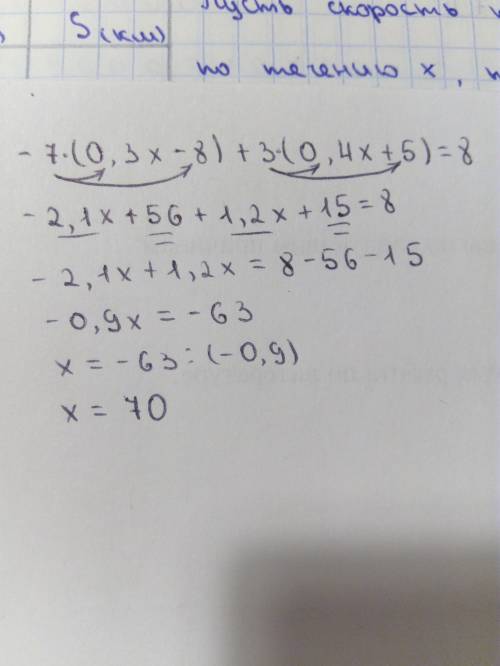 Пусть скорость
S (км)
по течению x, п
- 7·(0,3x-8)+3·(0,4x+5)=8
- 2,1x+56+1,2x+15=8
- 2,1x+1,2x = 8-56-15
- 0,9x = -63
x = -63:(-0,9)
x = 70